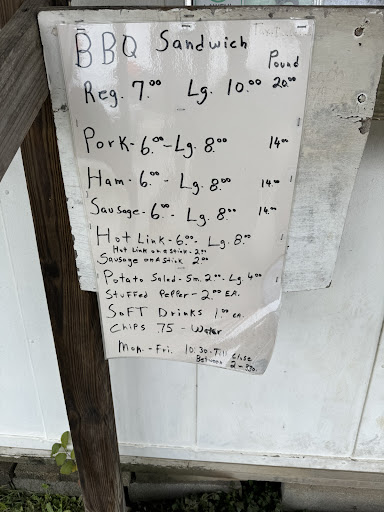 BBQ Sandwich
Pound
Reg. 7.00 Lg. 10.00 20.00
Pork - 6.00 - Lg. 8.00 14.00
Ham - 6.00 - Lg. 8.00 14.00
Sausage - 6.00 - Lg. 8.00 14.00
Hot Link - 6.00 - Lg. 8.00
Hot Link on a stick - 2.00
Sausage on a stick 2.00
Potato Salad - Sm. 2.00 - Lg. 4.00
Stuffed Pepper - 2.00 EA.
Soft Drinks 1.00 EA.
Chips .75 - Water
Mon. - Fri. 10:30 - Till Close
Between 2 - 3:30.